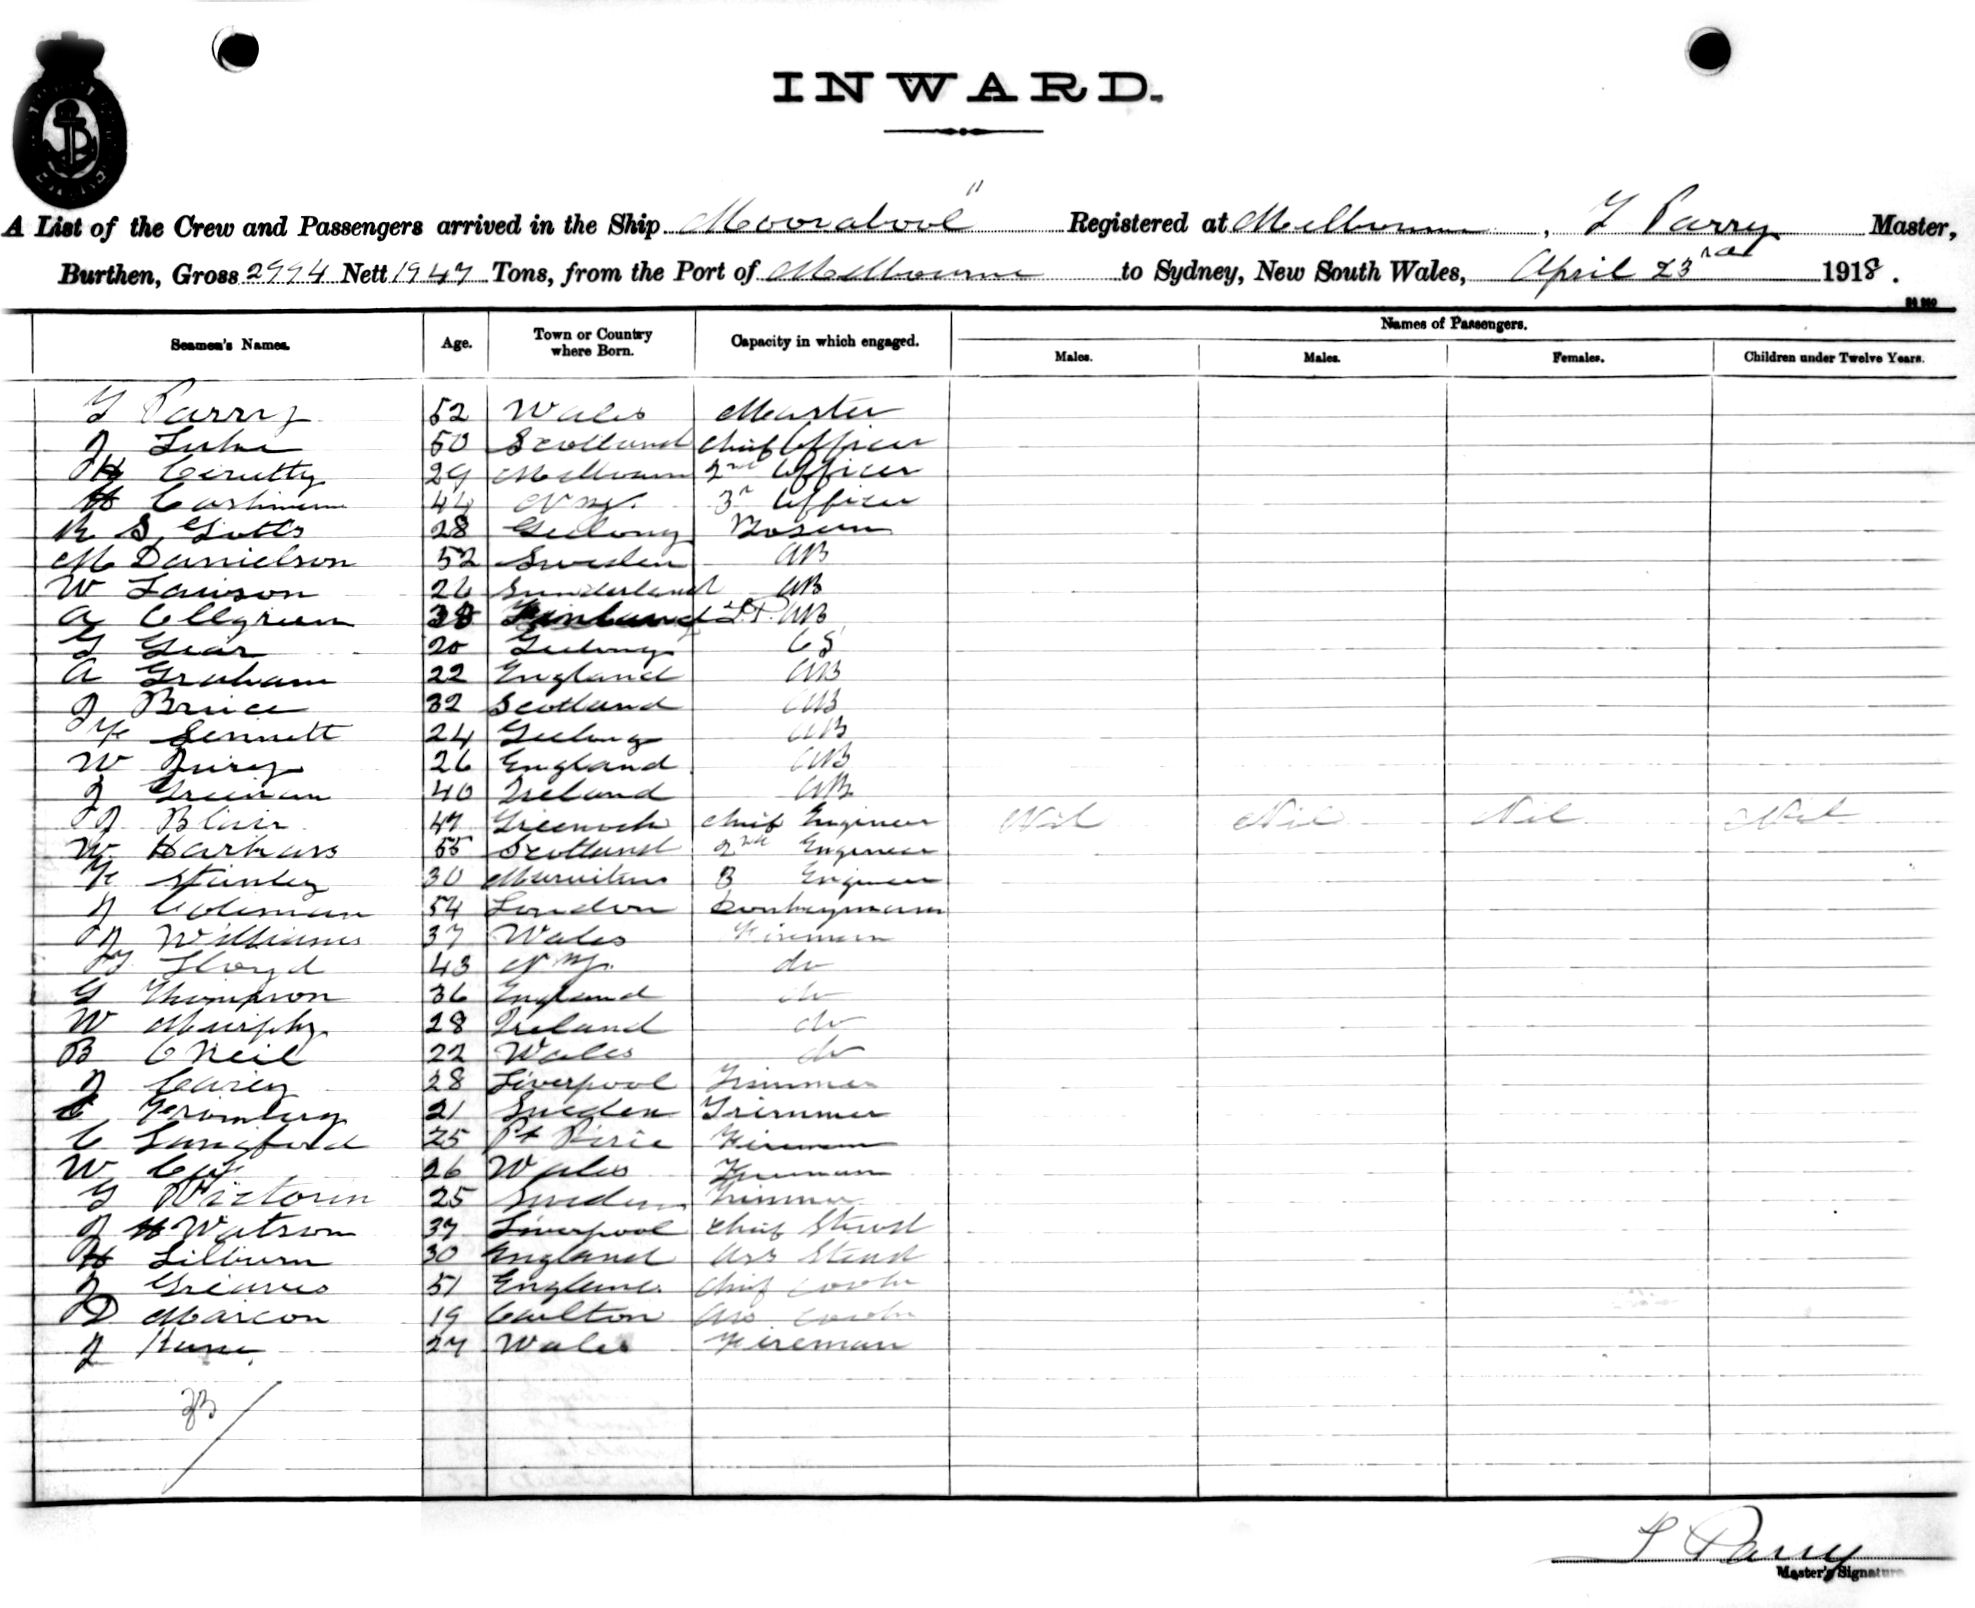 INWARD.
A List of the Crew and Passengers arrived in the Ship Moorabool" Registered at Melbourne, Parry Master,
Burthen, Gross 2994 Nett 1947 Tons, from the Port of Melbourne to Sydney, New South Wales, April 23rd 1918.
Names of Passengers.
Seamen's Names. Age. Town or Country where Born. Capacity in which engaged. Males. Males. Females. Children under Twelve Years.
Parry 52 Wales Master
J Luke 50 Scotland Chief Officer
H Cerutty 29 Melbourn 2nd Officer
H 44 N.Z. 3r Officer
R S Gotts 28 Geelong Bosun
M Danielson 52 Sweden AB
W Lawson 26 Sunderland AB
A Ellgreen 38 Finland AB
G Gear 20 Geelong OS
A Graham 22 England AB
J Bruce 32 Scotland AB
Sennett 24 Geelong AB
W Jurey 26 England AB
J Greenan 40 Ireland AB
J Blair 47 Greenock Chief Engineer Nil Nil Nil Nil
W Harkass 55 Scotland 2nd Engineer
F Stanley 30 Mauritius 3 Engineer
J Coleman 54 London Donkeymann
J Williams 37 Wales Fireman
Lloyd 43 N.Z. do
G Thompson 36 England do
W Murphy 28 Ireland do
B O'Neil 22 Wales do
J Carey 28 Liverpool Trimmer
Fromberg 21 Sweden Trimmer
C Langford 25 Pt Pirie Fireman
W Cox 26 Wales Fireman
G Victorin 25 Sweden Trimmer
J H Watson 37 Liverpool Chief Stewd
H Lilburn 30 England Ass Stewd
J Greaves 51 England Chief Cook
D Marcon 19 Carlton Ass Cook
J Kane 27 Wales Fireman
33
Parry
Master's Signature